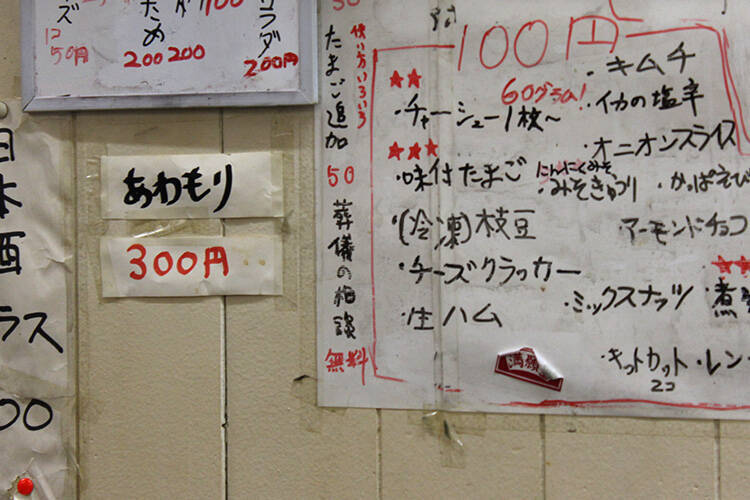 ズ
50円
ため
200
200
100
コラダ
200円
日本酒
ラス
00
あわもり
300円
使い方いろいろ
たまご追加
50
葬儀の相談
無料
100円
★★
・チャーシュー1枚〜
60グラム!
★★★
・味付たまご
・(冷凍)枝豆
・チーズクラッカー
・生ハム
・キムチ
・イカの塩辛
・オニオンスライス
にんにくみそ
・みそきゅうり
・かっぱえび
アーモンドチョコ
・ミックスナッツ
★★
・煮
・キットカット
2コ
・レン